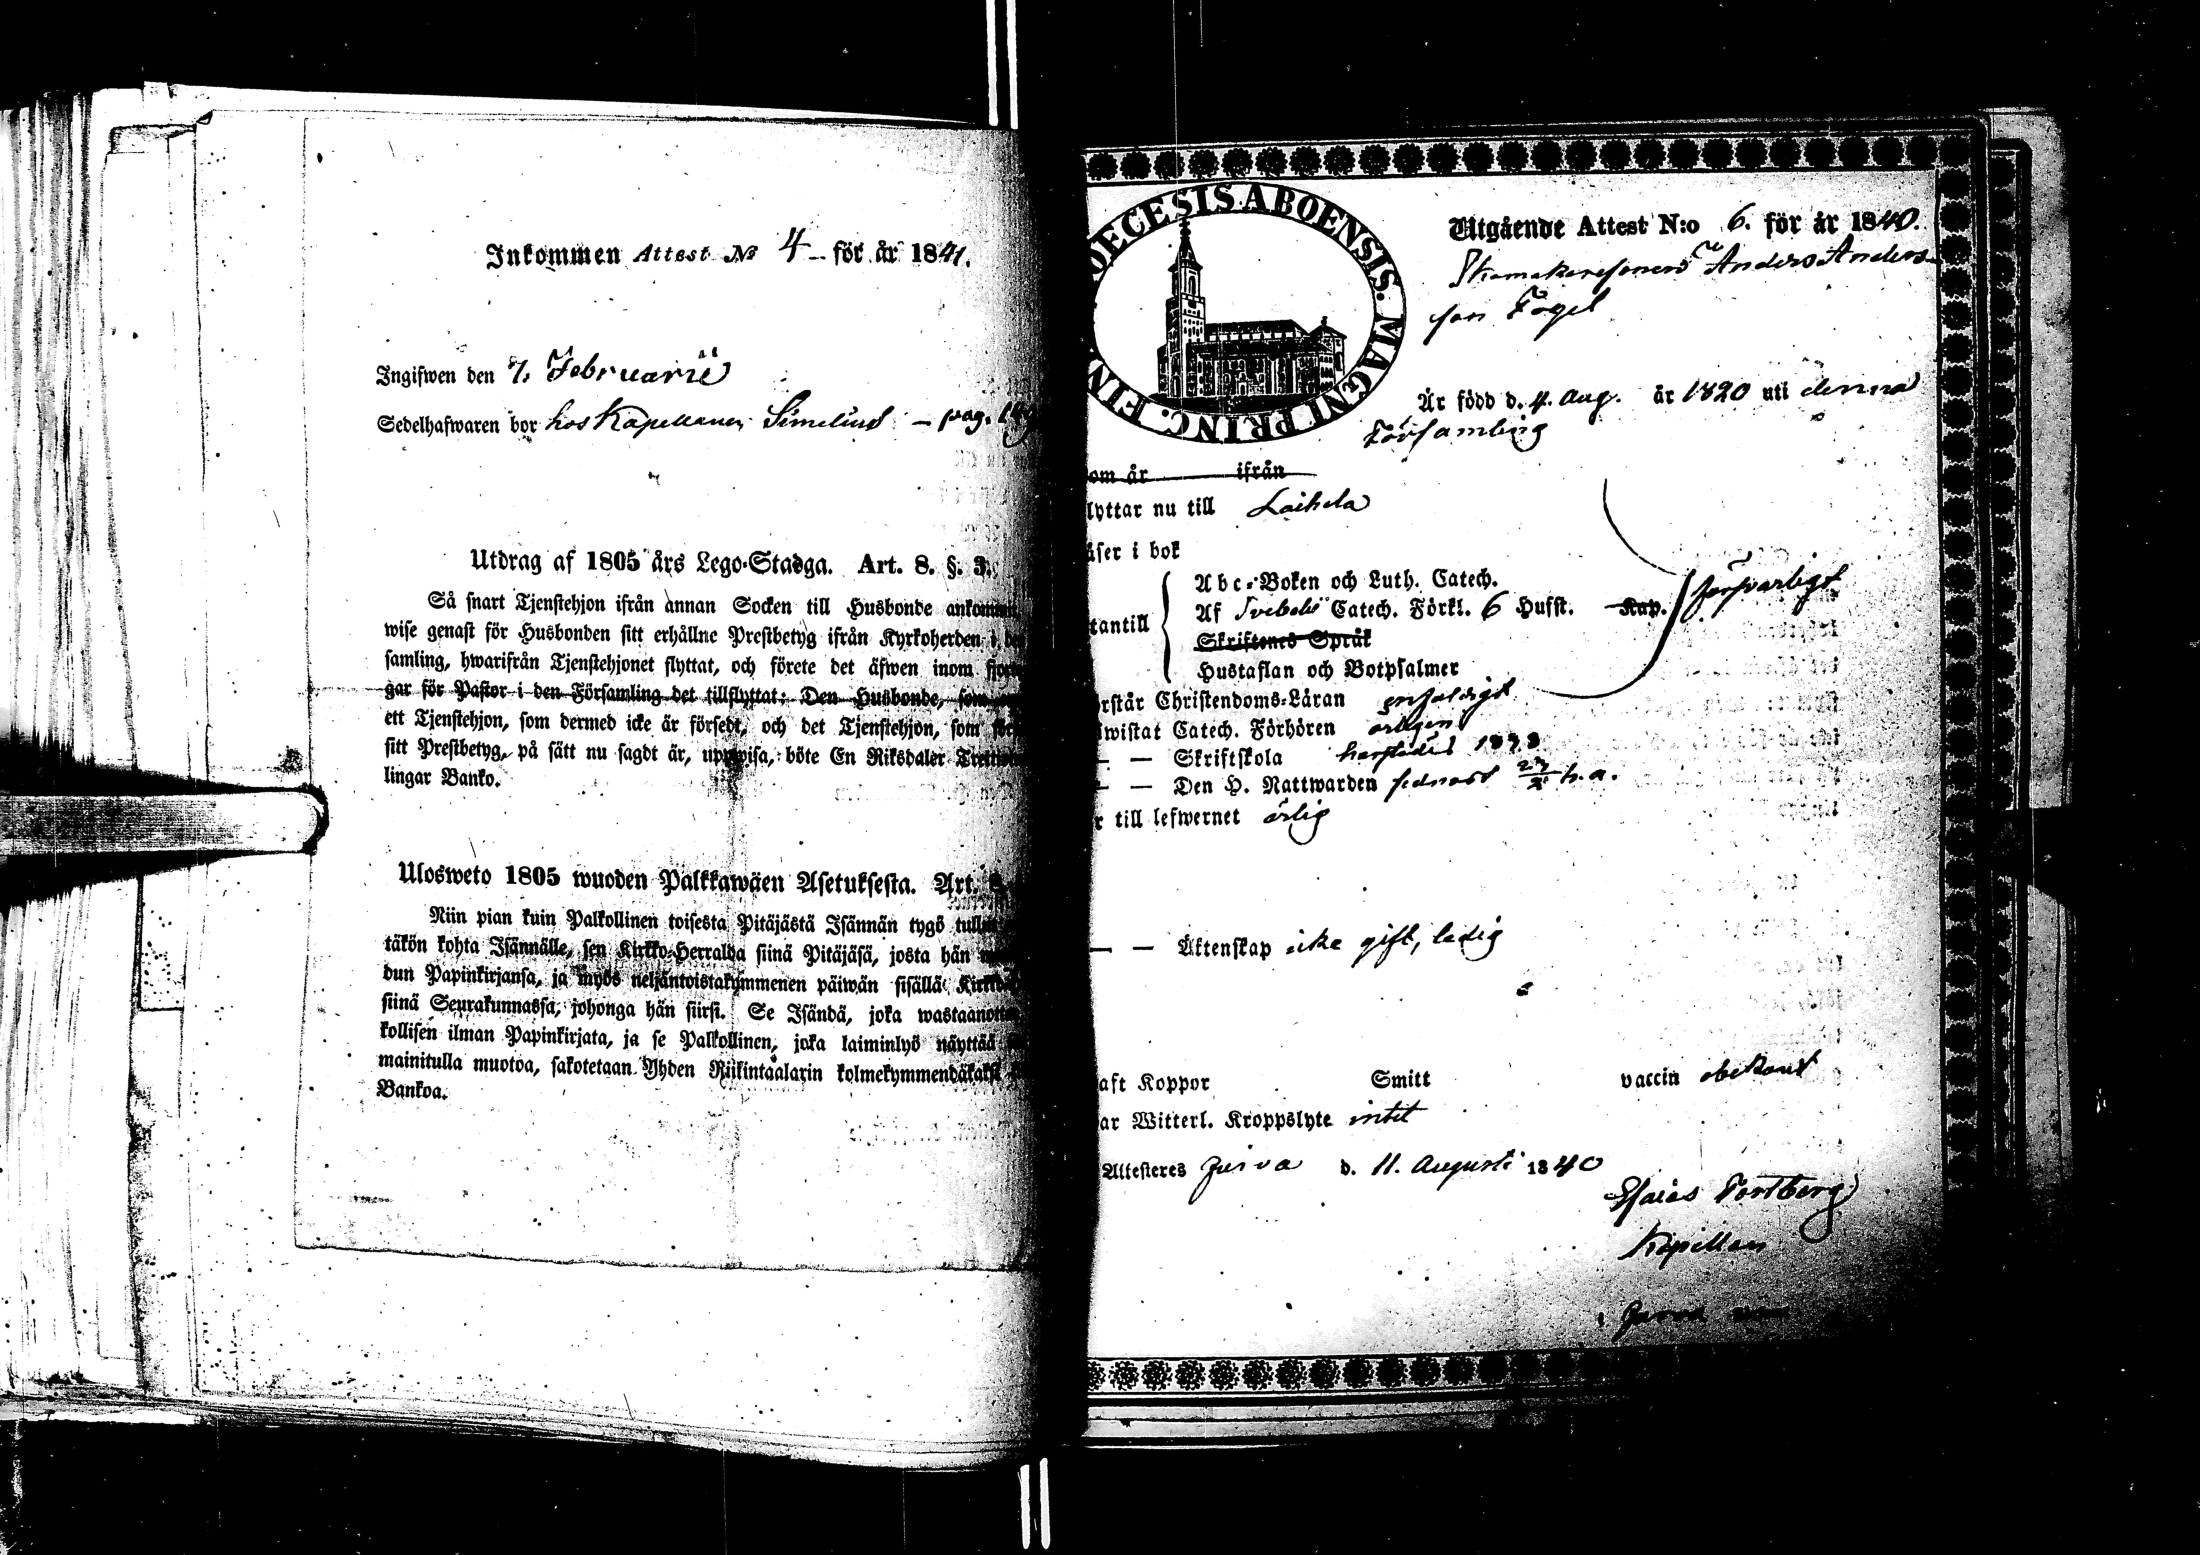 Inkommen Attest No 4 för år 1841.
Ingifwen den 7. Februarii
Sedelhafwaren bor hos Kapellanen Simelius – pag.
Utdrag af 1805 års Lego-Stadga. Art. 8. §. 3.
Så snart Tjenstehjon ifrån annan Socken till Husbonde
wise genast för Husbonden sitt erhållne Prestbetyg ifrån Kyrkoherden i
samling, hwarifrån Tjenstehjonet flyttat, och förete det äfwen inom
gar för Pastor i den Församling det tillflyttat: Den Husbonde, som
ett Tjenstehjon, som dermed icke är försedt, och det Tjenstehjon, som
sitt Prestbetyg, på sätt nu sagdt är, uppwisa, böte En Riksdaler
lingar Banko.
Ulosweto 1805 wuoden Palkkawäen Asetuksesta. Art.
Niin pian kuin Palkollinen toisesta Pitäjästä Isännän tygö
täkön kohta Isännälle, sen Kirkko-Herralda siinä Pitäjäsä, josta hän
dun Papinkirjansa, ja myös neljäntoistakymmenen päiwän sisällä
siinä Seurakunnassa, johonga hän siirsi. Se Isändä, joka
kollisen ilman Papinkirjata, ja se Palkollinen, joka laiminlyö näyttää
mainitulla muotoa, sakotetaan Yhden Riikintaalarin kolmekymmendäkaksi
Bankoa.
DIOECESIS ABOENSIS. MAGNI PRINC. FIN
Utgående Attest N:o 6. för år 1840.
Skomakaresonens Anders Anders-
son Fogel
Är född d. 4. Aug. år 1820 uti denna
Församling
om år ifrån
lyttar nu till Laihela
äser i bok
Abc-Boken och Luth. Catech.
tantill Af Svebelii Catech. Förkl. 6 Hufst. Kap. försvarligt
Skriftenes Språk
Hustaflan och Botpsalmer
rstår Christendoms-Läran enfaldigt
wistat Catech. Förhören årligen
– — Skriftskola härstädes 1838
– — Den H. Nattwarden sednast h. a.
r till lefwernet ärlig
— — Äktenskap icke gift, ledig
aft Koppor Smitt vaccin obekant
ar Witterl. Kroppslyte intet
Attesteres Jurva d. 11. Augusti 1840
Esaias Fortberg
Kapellan
i Jurva